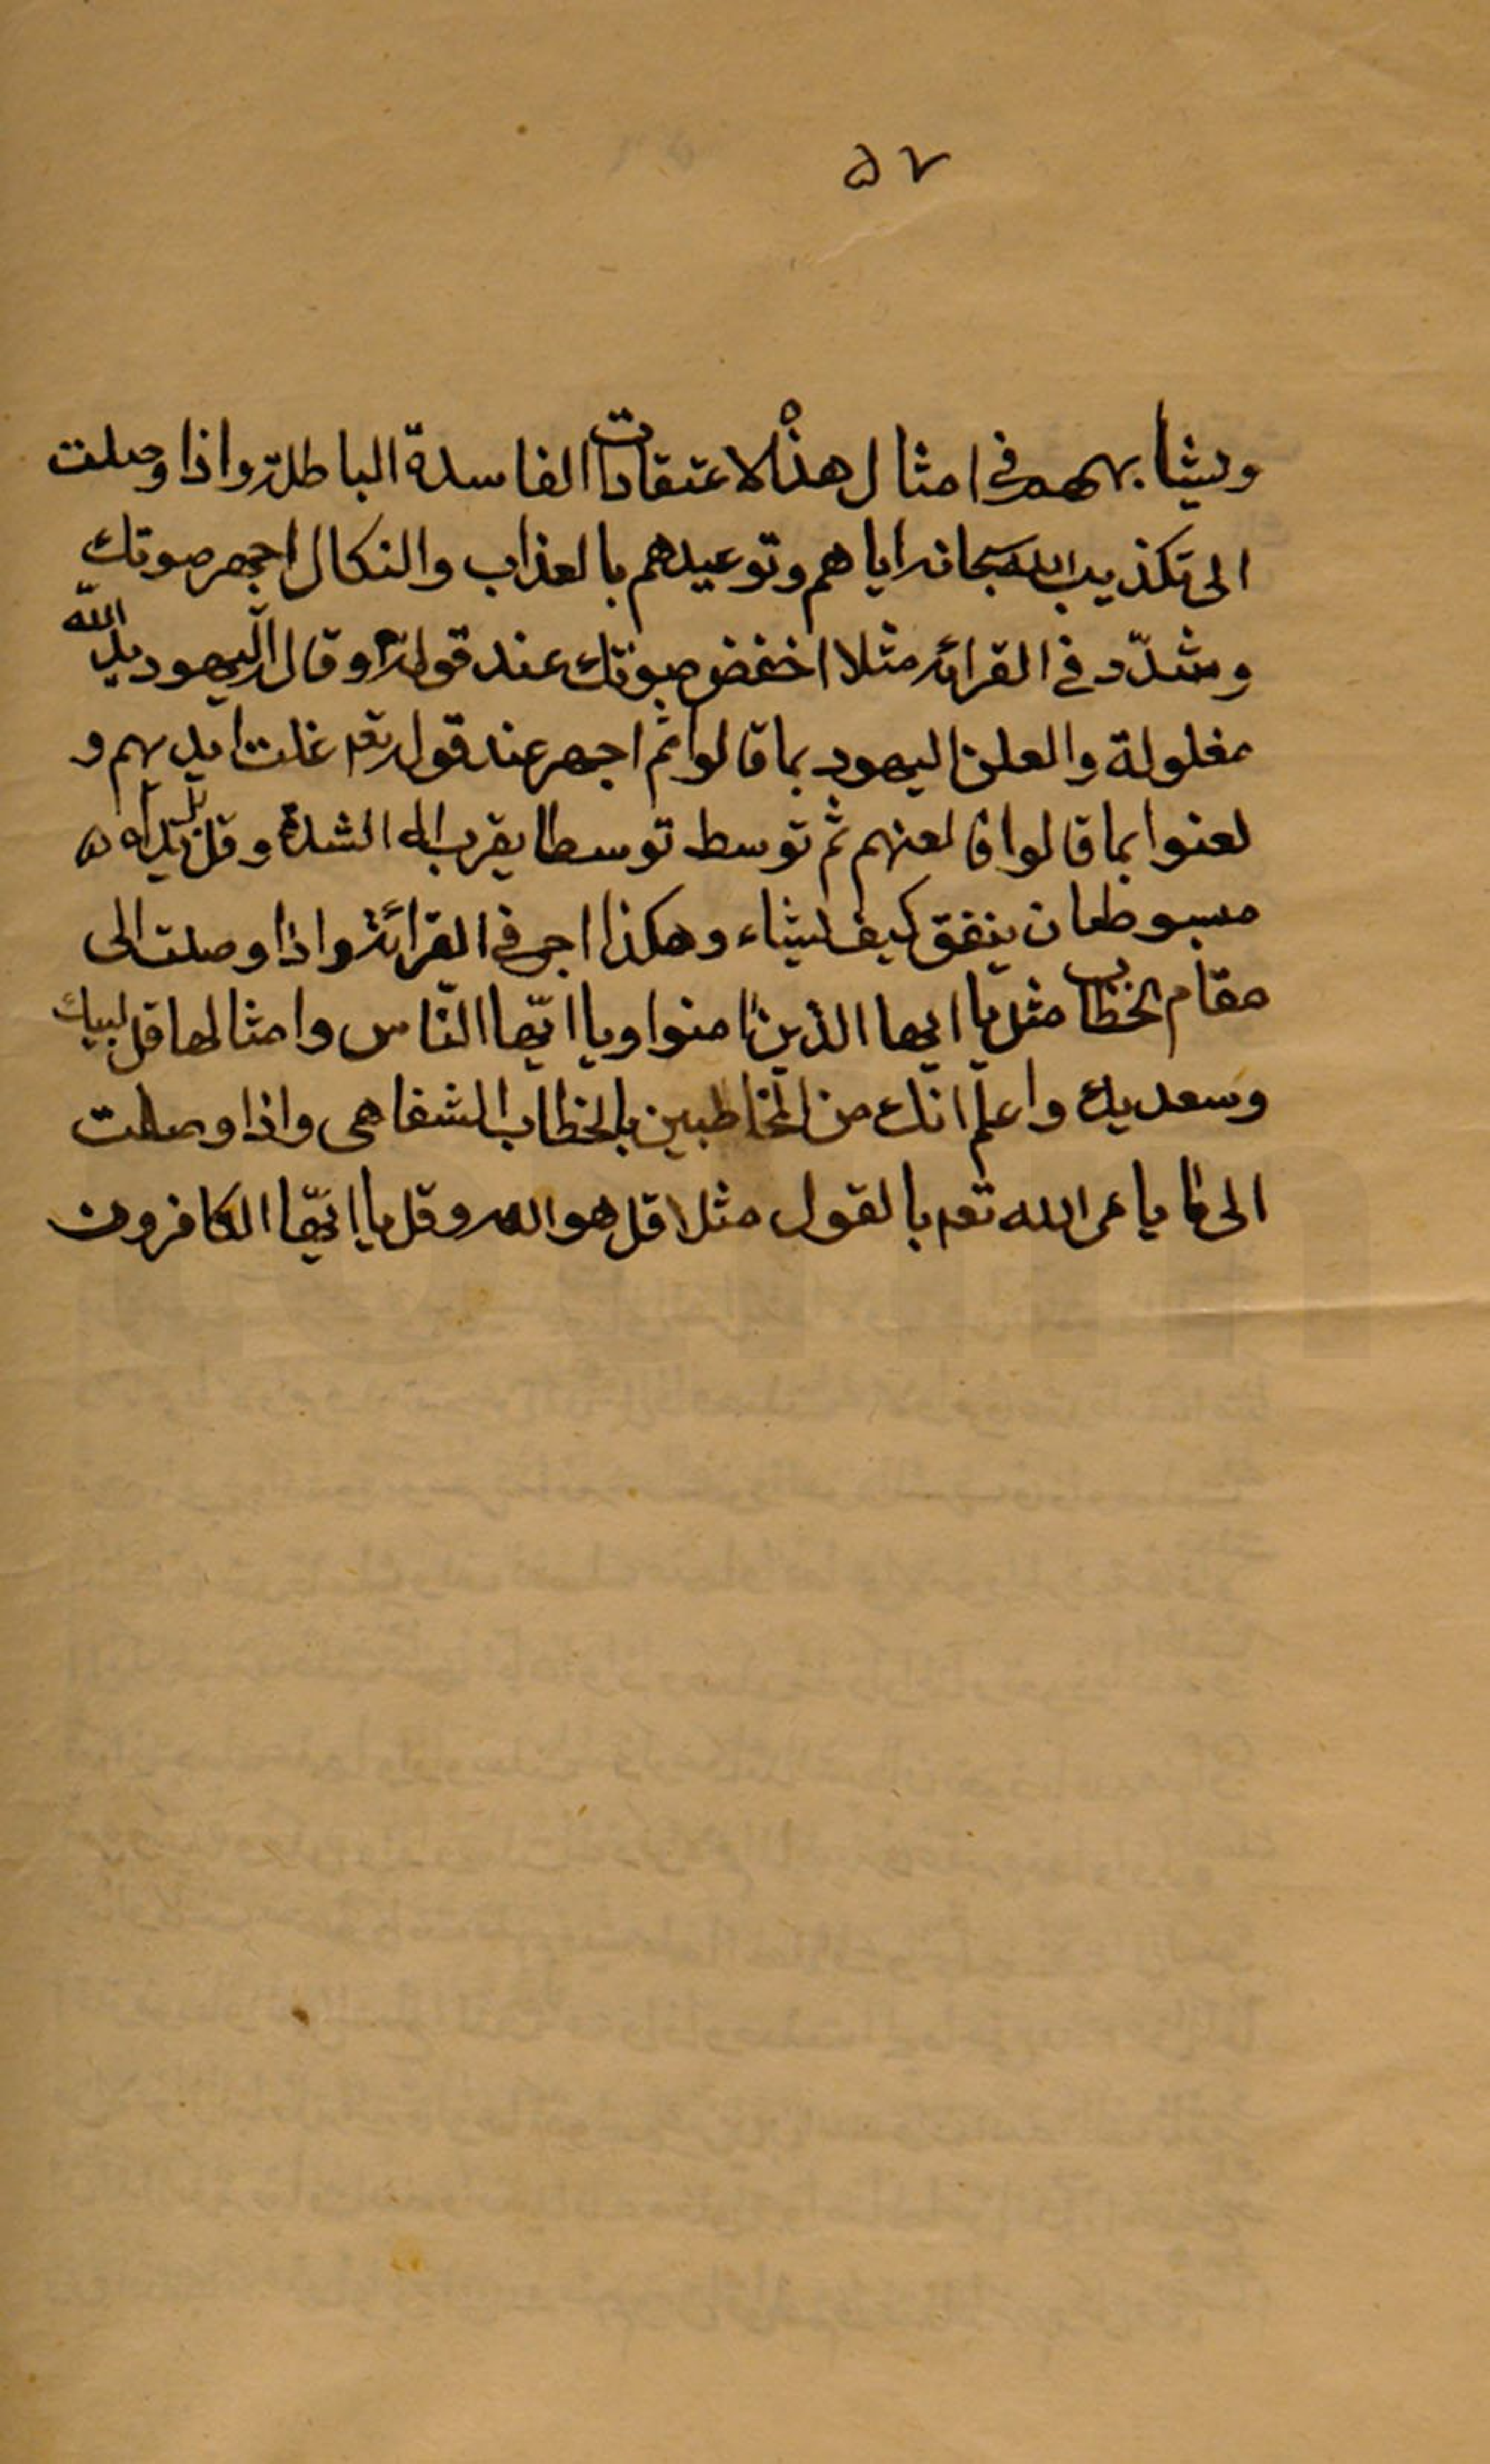 ٥٧
ويشابههم في امثال هذه الاعتقادات الفاسدة الباطلة واذا وصلت
الى تكذيب الله سبحانه اياهم وتوعيدهم بالعذاب والنكال اجهر صوتك
وشدّد في القرائه مثلا اخفض صوتك عند قوله وقال اليهود يد الله
مغلولة والعلن اليهود بما قالوا ثم اجهر عند قوله تعه غلت ايديهم و
لعنوا بما قالوا فالعنهم ثم توسط توسطا يقرب الى الشدة وقل بل يداه
مبسوطتان ينفق كيف يشاء وهكذا اجر في القرائة واذا وصلت الى
مقام الخطاب مثل يا ايها الذين امنوا ويا ايّها النّاس وامثالها قل لبيك
وسعديك واعلم انك من المخاطبين بالخطاب الشفاهى واذا وصلت
الى ما يامر الله تعه بالقول مثلا قل هو الله وقل يا ايّها الكافرون